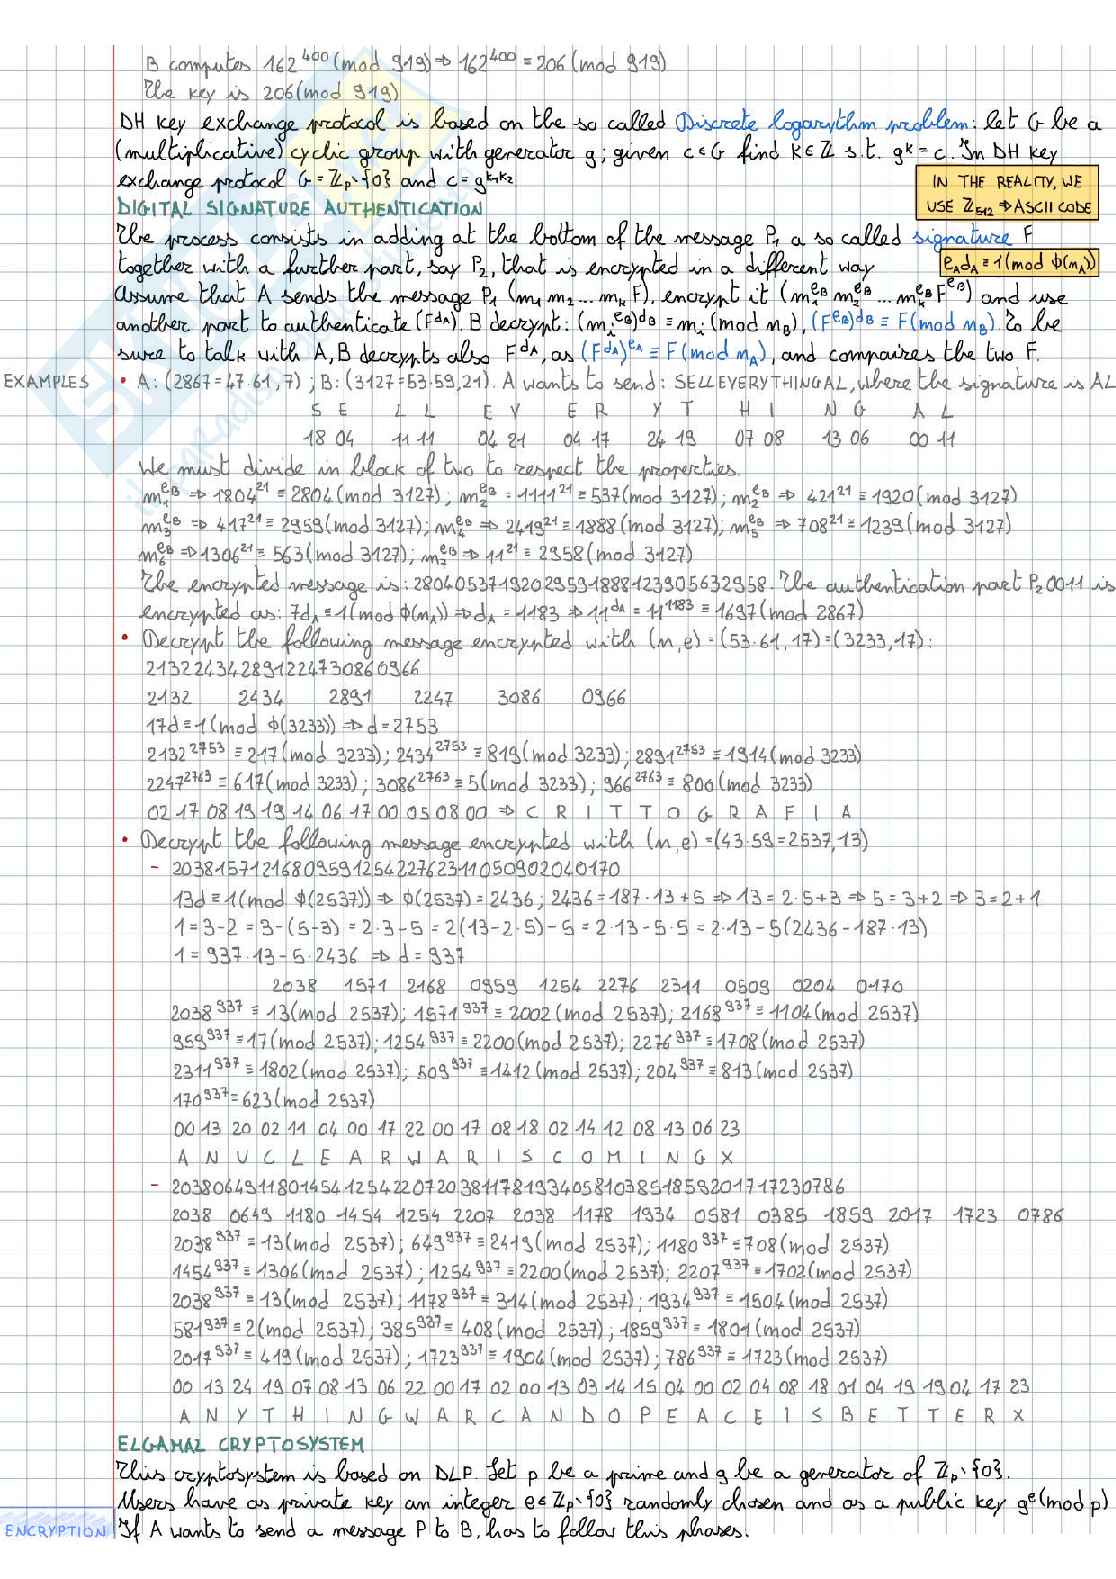 B computes 162^400 (mod 919) ⇒ 162^400 ≡ 206 (mod 919)
The key is 206 (mod 919)
DH key exchange protocol is based on the so called Discrete logarythm problem: let G be a
(multiplicative) cyclic group with generator g; given c∈G find k∈ℤ s.t. g^k = c. In DH key
exchange protocol G = ℤp\{0} and c = g^k1k2
IN THE REALITY, WE
USE ℤ512 ⇒ ASCII CODE
DIGITAL SIGNATURE AUTHENTICATION
The process consists in adding at the bottom of the message P1 a so called signature F
together with a further part, say P2, that is encrypted in a different way
eAdA ≡ 1 (mod ϕ(nA))
Assume that A sends the message P1 (m1 m2 ... mk F), encrypt it (m1^eB m2^eB ... mk^eB F^eB) and use
another part to authenticate (F^dA). B decrypt: (mi^eB)^dB ≡ mi (mod nB), (F^eB)^dB ≡ F (mod nB). To be
sure to talk with A, B decrypts also F^dA, as (F^dA)^eA ≡ F (mod nA), and compaires the two F.
EXAMPLES • A: (2867 = 47·61, 7); B: (3127 = 53·59, 21). A wants to send: SELLEVERYTHINGAL, where the signature is AL
S E L L E V E R Y T H I N G A L
18 04 11 11 04 21 04 17 24 19 07 08 13 06 00 11
We must divide in block of two to respect the properties.
m1^eB ⇒ 1804^21 ≡ 2804 (mod 3127); m2^eB = 1111^21 ≡ 537 (mod 3127); m2^eB ⇒ 421^21 ≡ 1920 (mod 3127)
m3^eB ⇒ 417^21 ≡ 2959 (mod 3127); m4^eB ⇒ 2419^21 ≡ 1888 (mod 3127); m5^eB ⇒ 708^21 ≡ 1239 (mod 3127)
m6^eB ⇒ 1306^21 ≡ 563 (mod 3127); m7^eB ⇒ 11^21 ≡ 2958 (mod 3127)
The encrypted message is: 28040537192029591888123905632958. The authentication part P2 0011 is
encrypted as: 7dA ≡ 1 (mod ϕ(nA)) ⇒ dA = 1183 ⇒ 11^dA = 11^1183 ≡ 1697 (mod 2867)
• Decrypt the following message encrypted with (n, e) = (53·61, 17) = (3233, 17):
213224342891224730860966
2132 2434 2891 2247 3086 0966
17d ≡ 1 (mod ϕ(3233)) ⇒ d = 2753
2132^2753 ≡ 217 (mod 3233); 2434^2753 ≡ 819 (mod 3233); 2891^2753 ≡ 1914 (mod 3233)
2247^2763 ≡ 617 (mod 3233); 3086^2763 ≡ 5 (mod 3233); 966^2763 ≡ 800 (mod 3233)
02 17 08 19 19 14 06 17 00 05 08 00 ⇒ C R I T T O G R A F I A
• Decrypt the following message encrypted with (n, e) = (43·59 = 2537, 13)
- 2038157121680959125422762311050902040170
13d ≡ 1 (mod ϕ(2537)) ⇒ ϕ(2537) = 2436; 2436 = 187·13+5 ⇒ 13 = 2·5+3 ⇒ 5 = 3+2 ⇒ 3 = 2+1
1 = 3-2 = 3-(5-3) = 2·3-5 = 2(13-2·5)-5 = 2·13-5·5 = 2·13-5(2436-187·13)
1 = 937·13-5·2436 ⇒ d = 937
2038 1571 2168 0959 1254 2276 2311 0509 0204 0170
2038^937 ≡ 13 (mod 2537); 1571^937 ≡ 2002 (mod 2537); 2168^937 ≡ 1104 (mod 2537)
959^937 ≡ 17 (mod 2537); 1254^937 ≡ 2200 (mod 2537); 2276^937 ≡ 1708 (mod 2537)
2311^937 ≡ 1802 (mod 2537); 509^937 ≡ 1412 (mod 2537); 204^937 ≡ 813 (mod 2537)
170^937 = 623 (mod 2537)
00 13 20 02 11 04 00 17 22 00 17 08 18 02 14 12 08 13 06 23
A N U C L E A R W A R I S C O M I N G X
- 203806491180145412542207203811781934058103851859201717230786
2038 0649 1180 1454 1254 2207 2038 1178 1934 0581 0385 1859 2017 1723 0786
2038^937 ≡ 13 (mod 2537); 649^937 ≡ 2419 (mod 2537); 1180^937 ≡ 708 (mod 2537)
1454^937 ≡ 1306 (mod 2537); 1254^937 ≡ 2200 (mod 2537); 2207^937 ≡ 1702 (mod 2537)
2038^937 ≡ 13 (mod 2537); 1178^937 ≡ 314 (mod 2537); 1934^937 ≡ 1504 (mod 2537)
581^937 ≡ 2 (mod 2537); 385^937 ≡ 408 (mod 2537); 1859^937 ≡ 1801 (mod 2537)
2017^937 ≡ 419 (mod 2537); 1723^937 ≡ 1904 (mod 2537); 786^937 ≡ 1723 (mod 2537)
00 13 24 19 07 08 13 06 22 00 17 02 00 13 03 14 15 04 00 02 04 08 18 01 04 19 19 04 17 23
A N Y T H I N G W A R C A N D O P E A C E I S B E T T E R X
ELGAMAL CRYPTOSYSTEM
This cryptosystem is based on DLP. Let p be a prime and g be a generator of ℤp\{0}.
Users have as private key an integer e∈ℤp\{0} randomly chosen and as a public key g^e (mod p)
ENCRYPTION If A wants to send a message P to B, has to follow this phases: